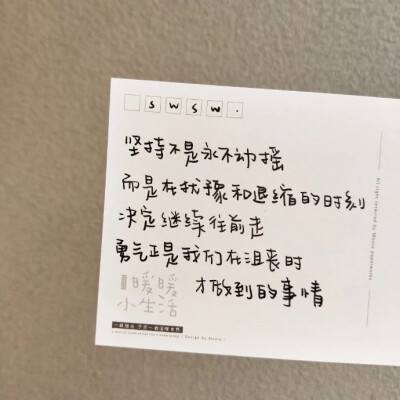 s w s w .
坚持不是永不动摇
而是在犹豫和退缩的时刻
决定继续往前走
勇气正是我们在沮丧时
才做到的事情
暖暖
小生活